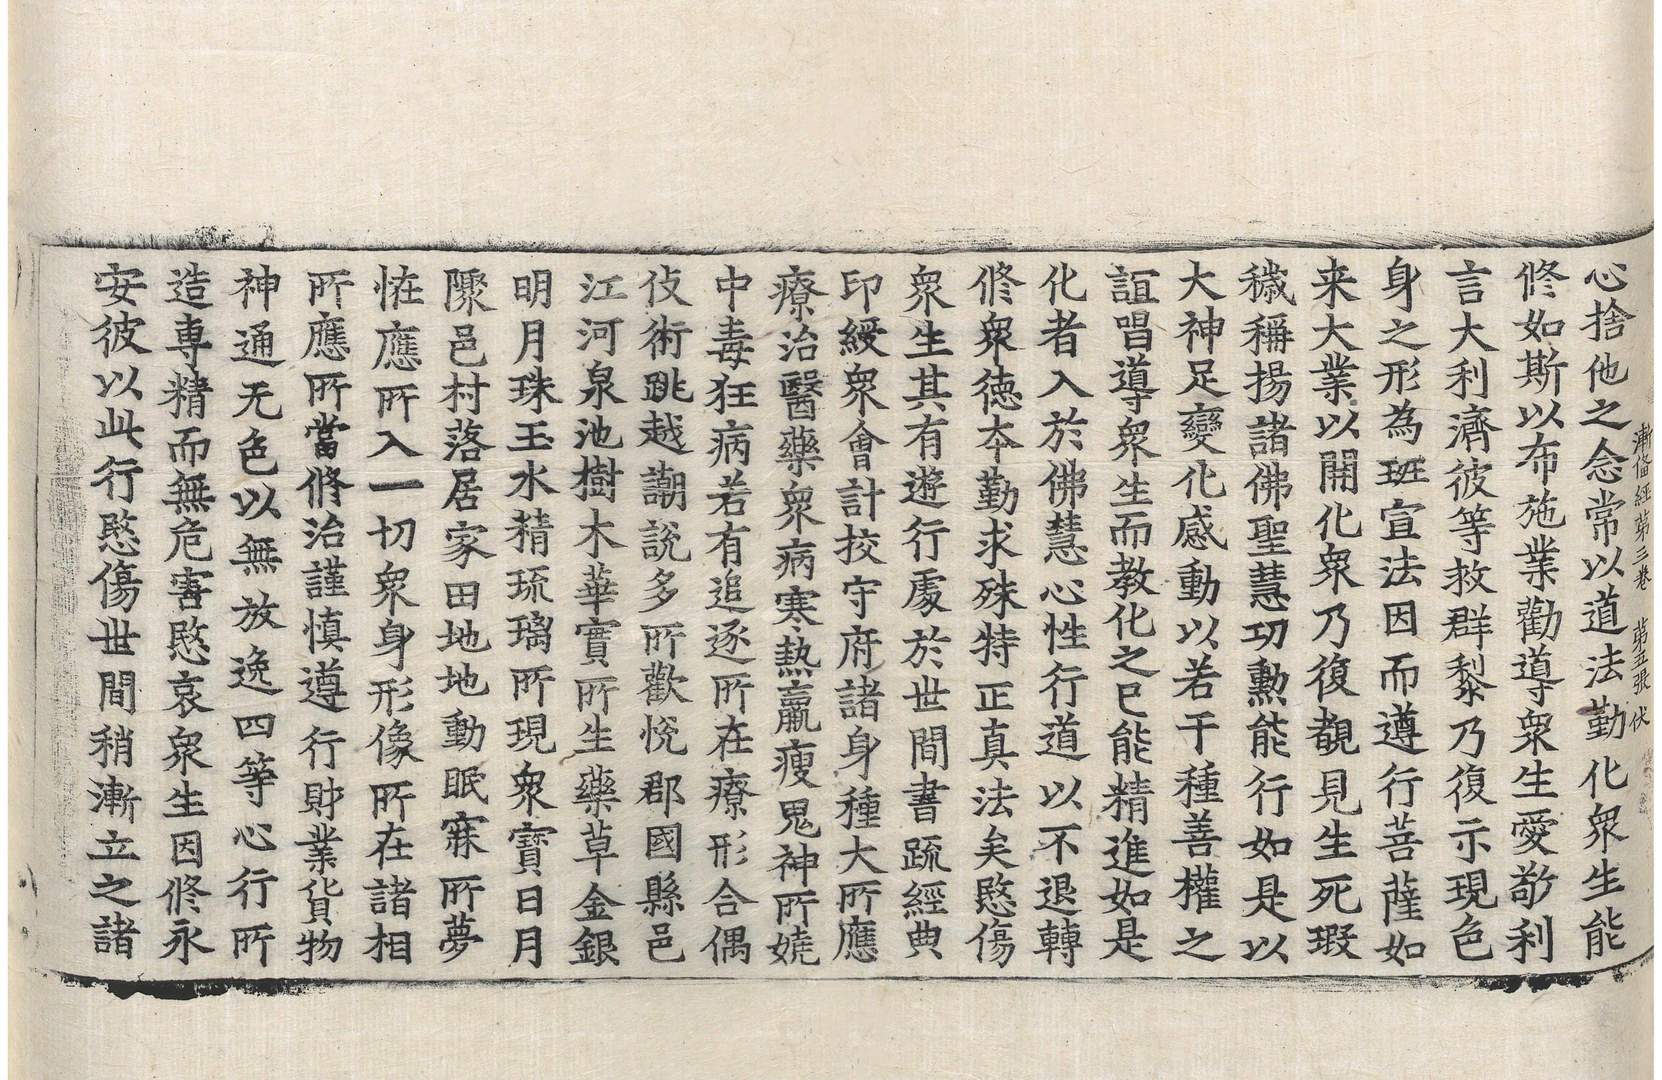 漸俻經第三卷　第五張　伏
心捨他之念常以道法勤化衆生能
修如斯以布施業勸導衆生愛敬利
言大利濟彼等救群黎乃復示現色
身之形為班宣法因而遵行菩薩如
来大業以開化衆乃復覩見生死瑕
穢稱揚諸佛聖慧功勲能行如是以
大神足變化感動以若干種善權之
誼唱導衆生而教化之已能精進如是
化者入於佛慧心性行道以不退轉
修衆德夲勤求殊特正真法矣愍傷
衆生其有遊行處於世間書䟽經典
印綬衆會計挍守府諸身種大所應
療治醫藥衆病寒熱羸瘦鬼神所嬈
中毒狂病若有追逐所在療形合偶
伎術跳越謿說多所歡悅郡國縣邑
江河泉池樹木華實所生藥草金銀
明月珠玉水精琉璃所現衆寶日月
隟邑村落居家田地地動眠寐所夢
恠應所入一切衆身形像所在諸相
所應所當修治謹慎遵行財業貨物
神通无色以無放逸四等心行所
造專精而無危害愍哀衆生因修永
安彼以此行愍傷世間稍漸立之諸